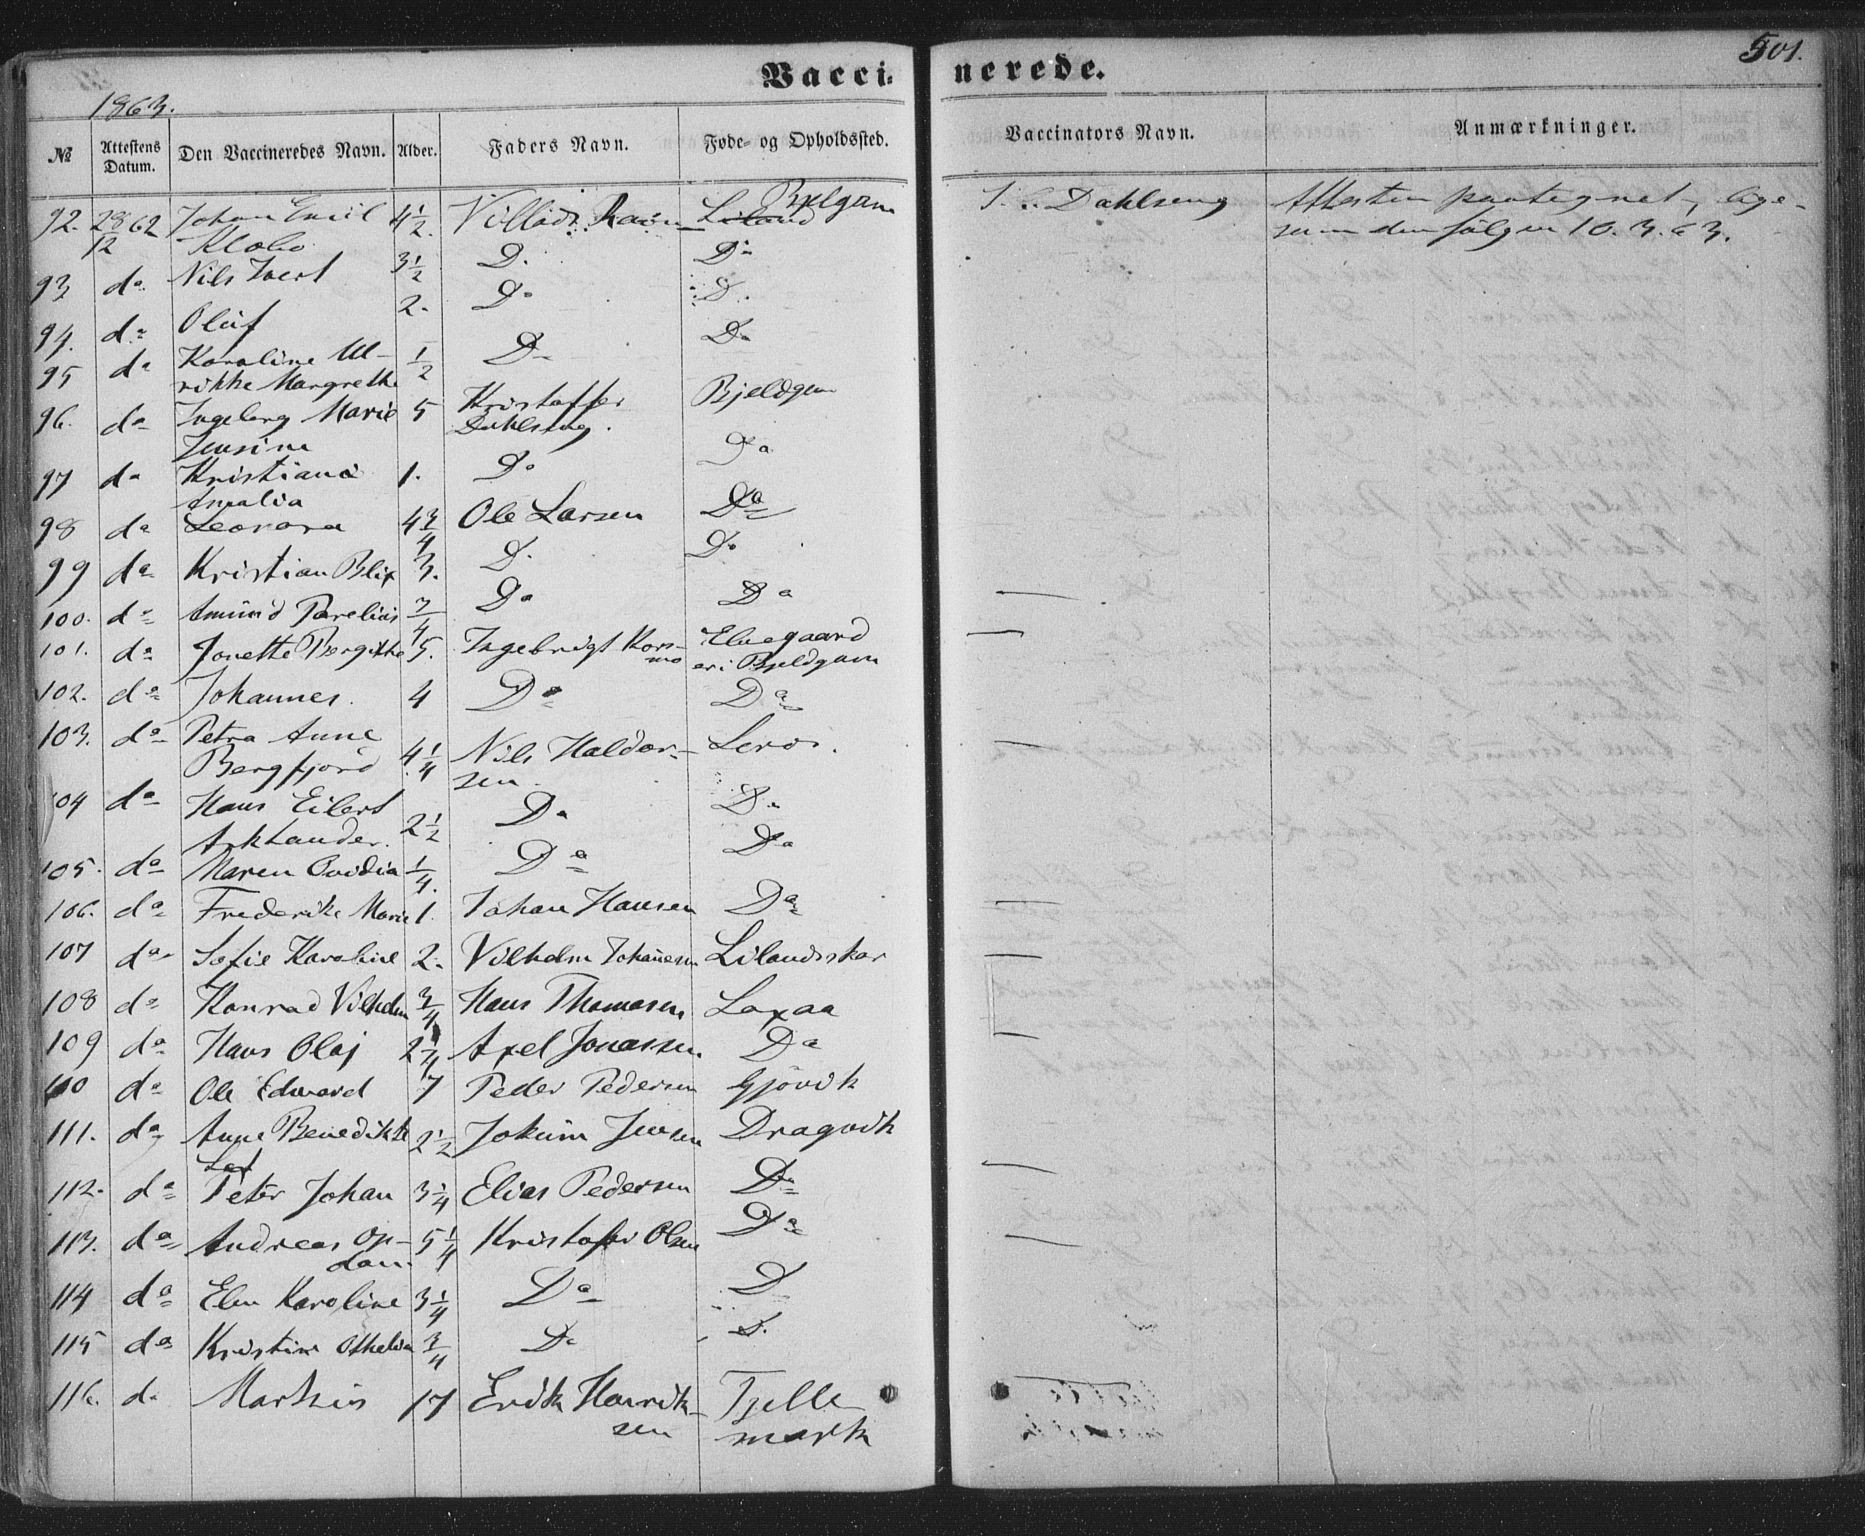 Vacci- nerede.
501.
1863.
№ Attestens Datum. Den Vaccineredes Navn. Alder. Faders Navn. Føde- og Opholdssted. Vaccinators Navn. Anmærkninger.
92. 28/12 62 Johan Emil 4 1/2 Villads Liland Dahlseng Attesten paategnet, lige-
Klæbo som den følgen 10.3.63.
93 do Nils Ivert 3 1/2 Do Do
94. do Oluf 2. Do Do
95 do Karoline Ul- 1/2 Do Do
rikke Margrethe
96. do Ingeborg Marie 5 Kristoffer Bjeldgam
Jensine Dahlseng.
97 do Kristiane 1. Do Do
Amalia
98 do Leonora 4 3/4 Ole Larsen Do
99 do Kristian Blix 3. Do Do
100. do Amund Parelius 3/4 Do Do
101. do Jonette Bergithe 5. Ingebrigt Kors- Elvegaard
mo Bjeldgam
102. do Johannes. 4 Do Do
103. do Petra Anne 4 1/4 Nils Haldor- Leros.
Bergfjord sen.
104 do Hans Eilert 2 1/2 Do Do
Arktander.
105. do Maren Ovidia 1/4. Do Do
106. do Frederike Marie 1. Johan Hansen Do
107 do Sofie Karoline 2. Vilhelm Johansen Lilandsskar
108 do Konrad Vilhelm 3/4 Hans Thomasen Laxaa
109 do Hans Olaj 2 1/4 Axel Jonassen Do
110 do Ole Edward 7 Peder Pedersen Gjövik
111. do Anne Benedikte 2 1/2 Jokum Jensen Dragvik
112. do Peter Johan 3 1/4 Elias Pedersen Do
113. do Andreas Op- 5 1/4 Kristofer Olsen Do
dam
114 do Elen Karoline 3 1/4 Do D
115 do Kristine Othelia 3/4 Do D.
116. do Markus 17 Erik Henrik- Tjelle-
sen mark